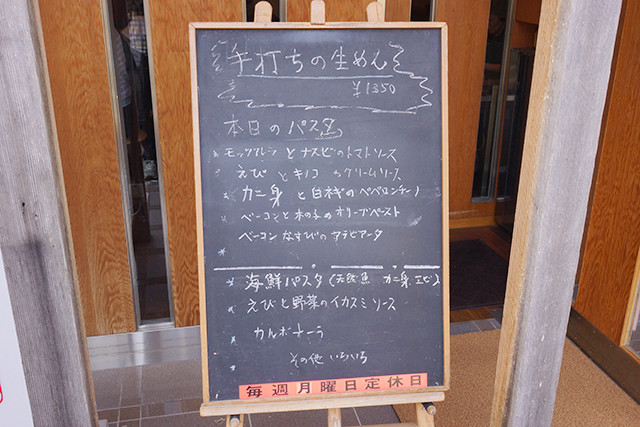 手打ちの生めん
¥1350
本日のパスタ
モッツァレラとナスビのトマトソース
えびとキノコのクリームソース
カニ身と白ネギのペペロンチーノ
ベーコンと木の子のオリーブペースト
ベーコンなすびのアラビアータ
海鮮パスタ(天然魚 カニ身 エビ)
えびと野菜のイカスミソース
カルボナーラ
その他いろいろ
毎週月曜日定休日